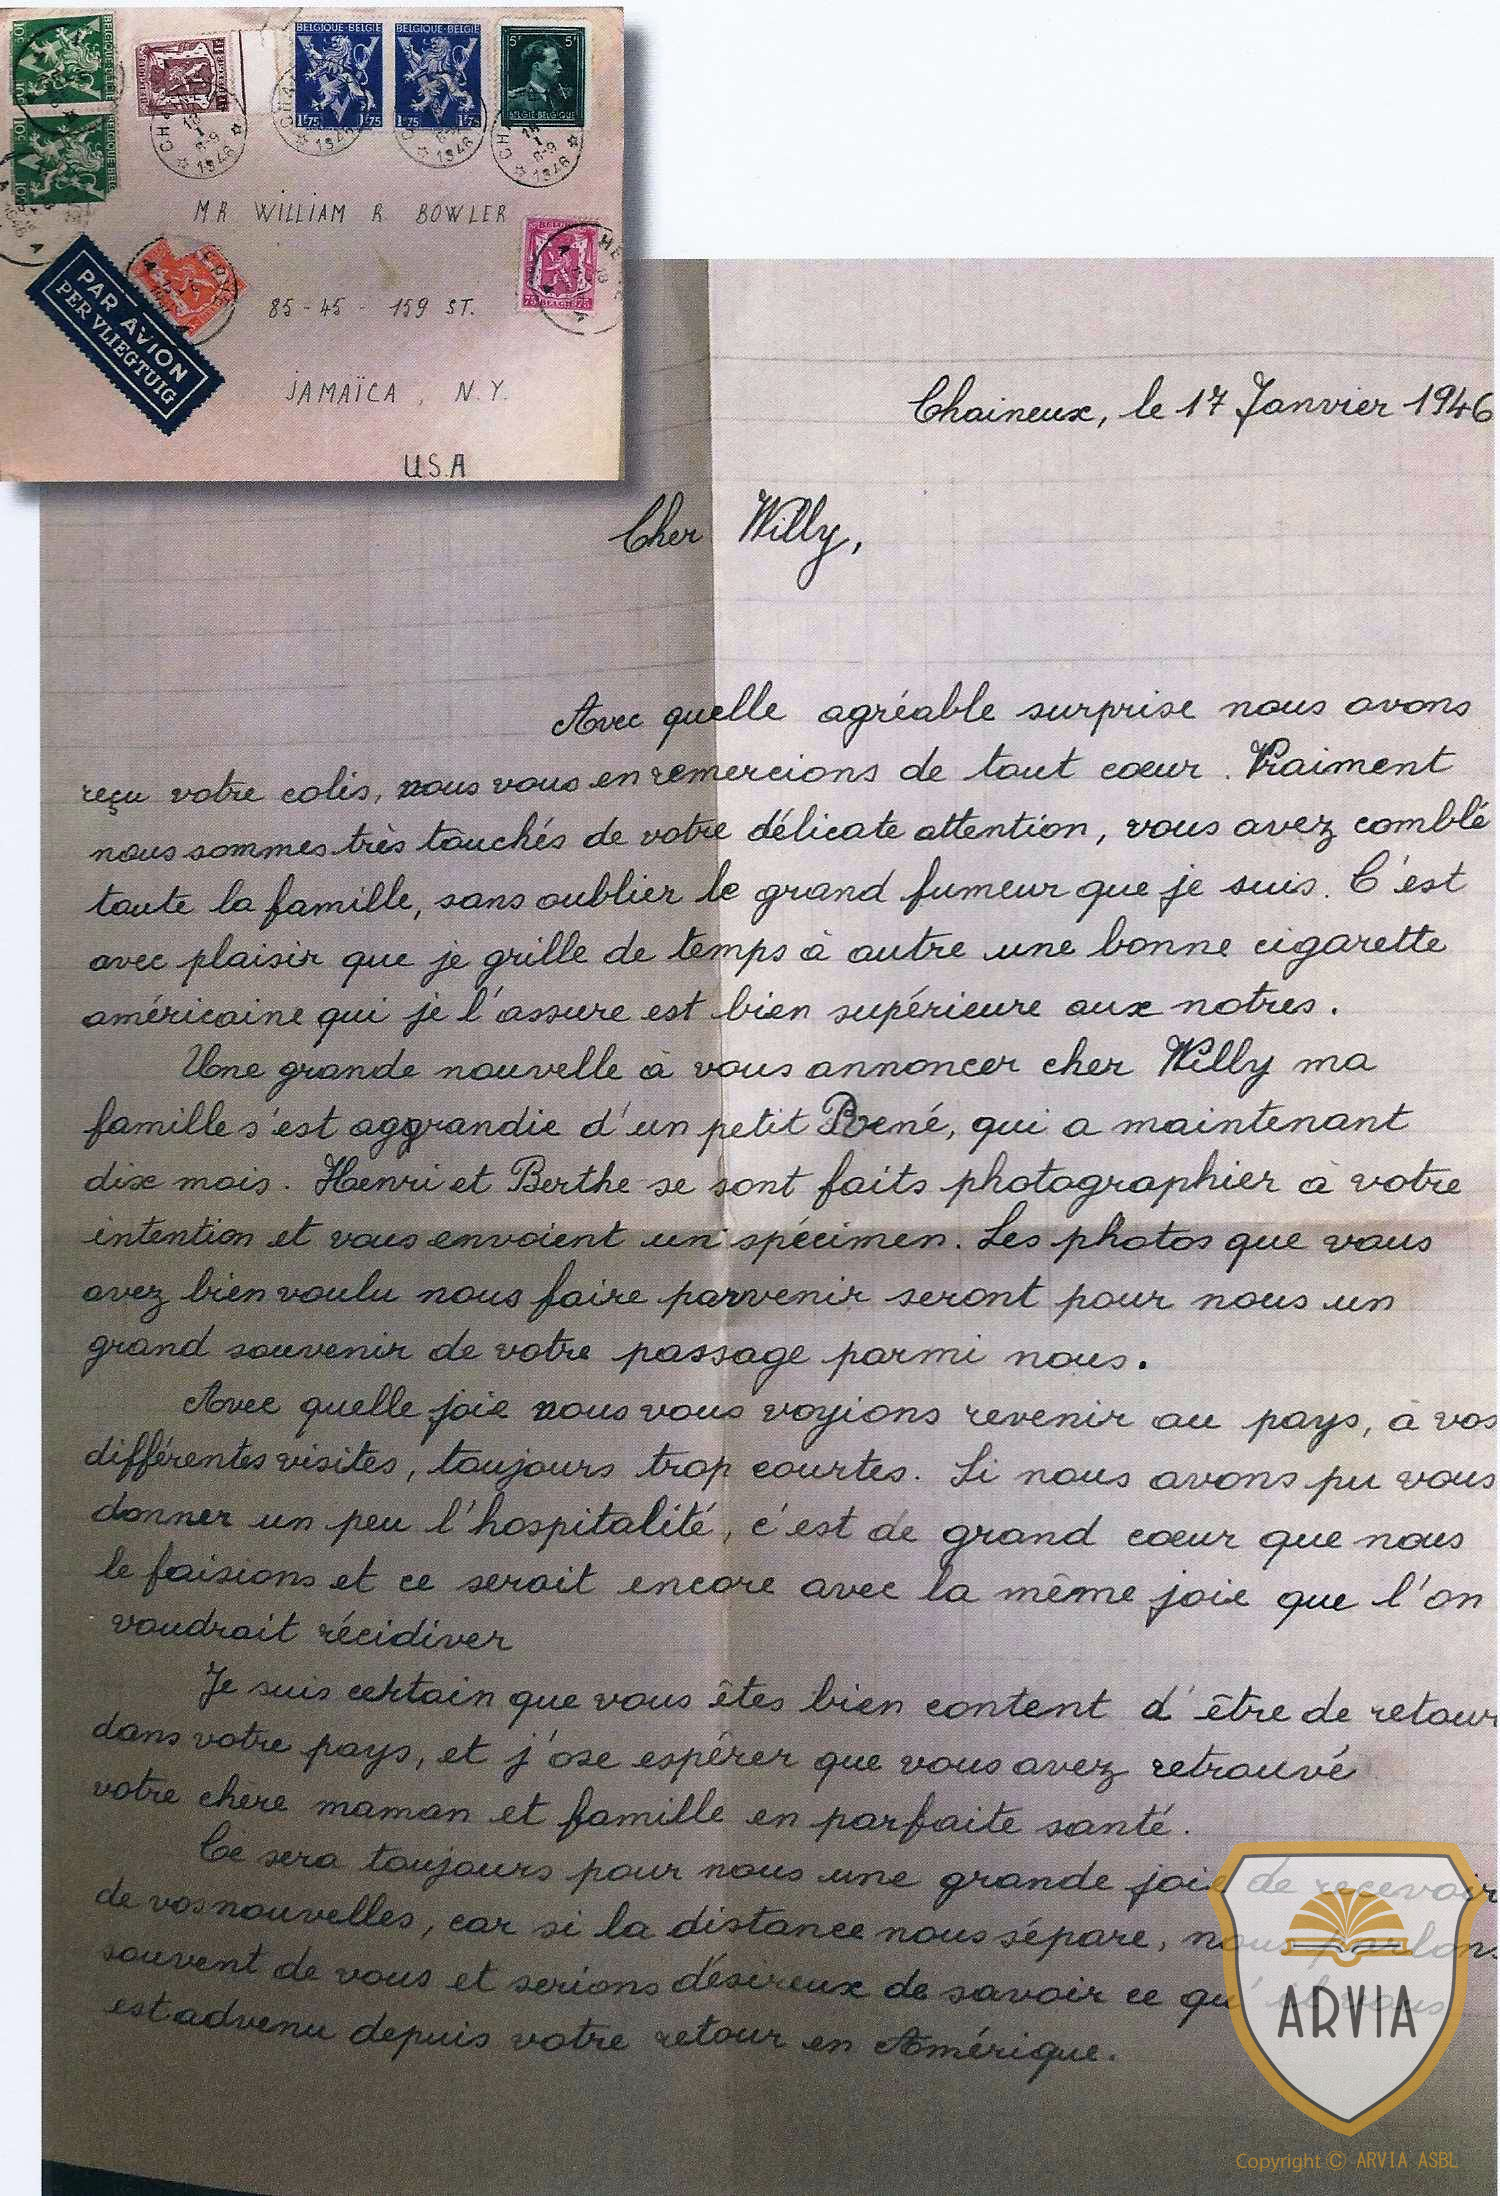 BELGIQUE-BELGIE
BELGIQUE-BELGIE
BELGIQUE-BELGIE
10c
10c
10c
1F75 1F75
1F75 1F75
5F 5F
BELGIE-BELGIQUE
75 BELGIE 75
1946
1946
1946
1946
MR WILLIAM R. BOWLER
85-45-159 ST.
JAMAÏCA, N.Y.
USA
PAR AVION
PER VLIEGTUIG
Chaineux, le 17 Janvier 1946
Cher Willy,
Avec quelle agréable surprise nous avons
reçu votre colis, nous vous en remercions de tout cœur. Vraiment
nous sommes très touchés de votre délicate attention, vous avez comblé
toute la famille, sans oublier le grand fumeur que je suis. C'est
avec plaisir que je grille de temps à autre une bonne cigarette
américaine qui je l'assure est bien supérieure aux notres.
Une grande nouvelle à vous annoncer cher Willy ma
famille s'est aggrandie d'un petit René, qui a maintenant
dix mois. Henri et Berthe se sont faits photographier à votre
intention et vous envoient un spécimen. Les photos que vous
avez bien voulu nous faire parvenir seront pour nous un
grand souvenir de votre passage parmi nous.
Avec quelle joie nous vous voyions revenir au pays, à vos
différentes visites, toujours trop courtes. Si nous avons pu vous
donner un peu l'hospitalité, c'est de grand cœur que nous
le faisions et ce serait encore avec la même joie que l'on
voudrait récidiver
Je suis certain que vous êtes bien content d'être de retour
dans votre pays, et j'ose espérer que vous avez retrouvé
votre chère maman et famille en parfaite santé.
Ce sera toujours pour nous une grande joie de recevoir
de vos nouvelles, car si la distance nous sépare, nous parlons
souvent de vous et serions désireux de savoir ce qu'il vous
est advenu depuis votre retour en Amérique.
ARVIA
Copyright © ARVIA ASBL